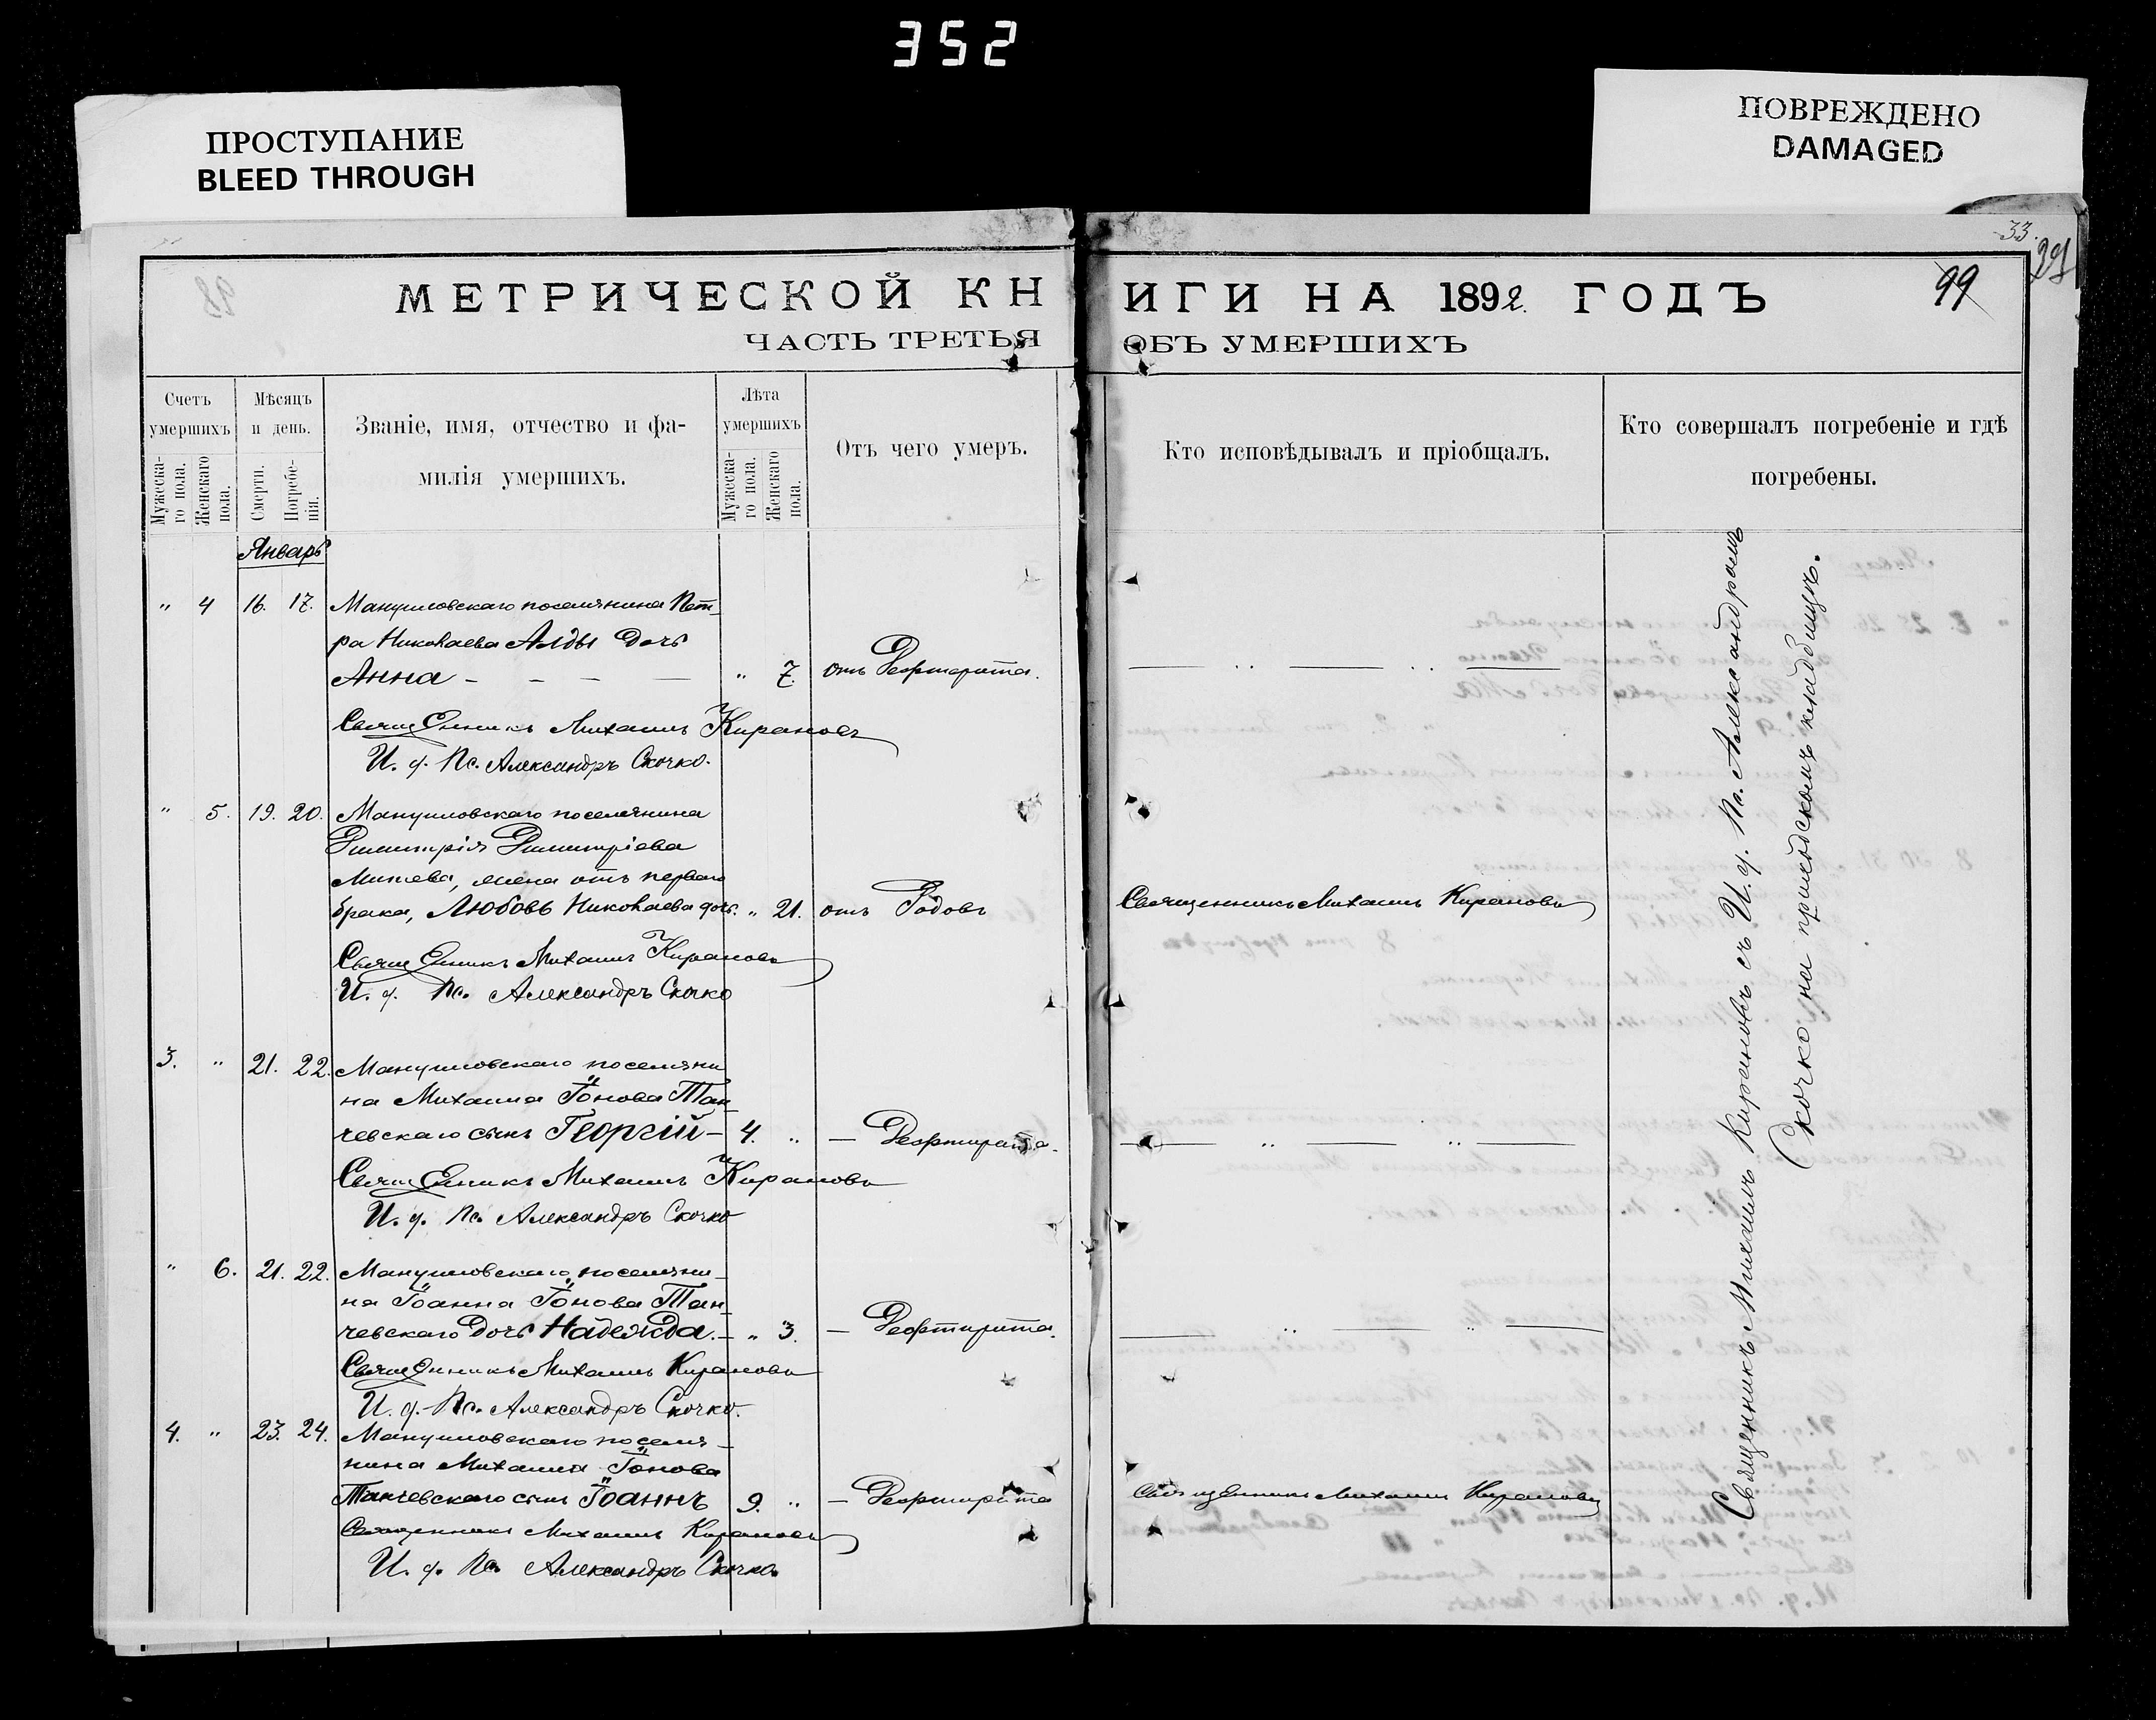 352
ПРОСТУПАНИЕ
BLEED THROUGH
ПОВРЕЖДЕНО
DAMAGED
33.
99
МЕТРИЧЕСКОЙ КНИГИ НА 1892 ГОДЪ
ЧАСТЬ ТРЕТЬЯ ОБЪ УМЕРШИХЪ
Счетъ умершихъ
Мужеска-го пола.
Женскаго пола.
Мѣсяцъ и день.
Смерти.
Погребе-нія.
Званіе, имя, отчество и фа-
милія умершихъ.
Лѣта умершихъ
Мужеска-го пола.
Женскаго пола.
Отъ чего умеръ.
Кто исповѣдывалъ и пріобщалъ.
Кто совершалъ погребеніе и гдѣ
погребены.
Январь
" 4 16. 17. Мануиловскаго поселянина Пет-
ра Николаева Алды дочь
Анна - - - — " 7. отъ Дефтерита. — " — " —
Священникъ Михаилъ Кирановъ
И. д. Пс. Александръ Скочко.
" 5. 19. 20. Мануиловскаго поселянина
Димитрія Димитріева
Митева, жена отъ перваго
брака, Любовь Николаева дочь. " 21. отъ Родовъ Священникъ Михаилъ Кирановъ
Священникъ Михаилъ Кирановъ
И. д. Пс. Александръ Скочко
3. " 21. 22. Мануиловскаго поселяни
на Михаила Іонова Тан-
чевскаго сынъ Георгій — 4. " — Дефтирита. — " — " —
Священникъ Михаилъ Кирановъ
И. д. Пс. Александръ Скочко
" 6. 21. 22. Мануиловскаго поселяни-
на Іоанна Іонова Тан-
чевскаго дочь Надежда. — " 3. — Дефтирита. — " — " —
Священникъ Михаилъ Кирановъ
И. д. Пс. Александръ Скочко.
4. " 23. 24. Мануиловскаго поселя-
нина Михаила Іонова
Танчевскаго сынъ Іоаннъ 9. " — Дефтирита Священникъ Михаилъ Кирановъ
Священникъ Михаилъ Кирановъ
И. д. Пс. Александръ Скочко.
Священникъ Михаилъ Кирановъ съ И. д. Пс. Александромъ
Скочко на приходскомъ кладбищѣ.